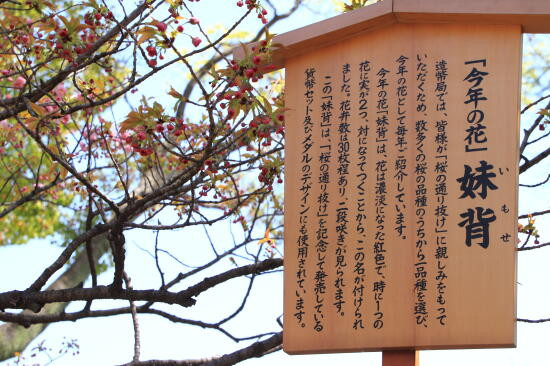 「今年の花」妹背
いもせ
造幣局では、皆様が「桜の通り抜け」に親しみをもって
いただくため、数多くの桜の品種のうちから一品種を選び、
今年の花として毎年ご紹介しています。
今年の花「妹背」は、花は濃淡になった紅色で、時に一つの
花に実が2つ、対になってつくことから、この名が付けられ
ました。花弁数は30枚程あり、二段咲きが見られます。
この「妹背」は、「桜の通り抜け」を記念して発売している
貨幣セット及びメダルのデザインにも使用されています。